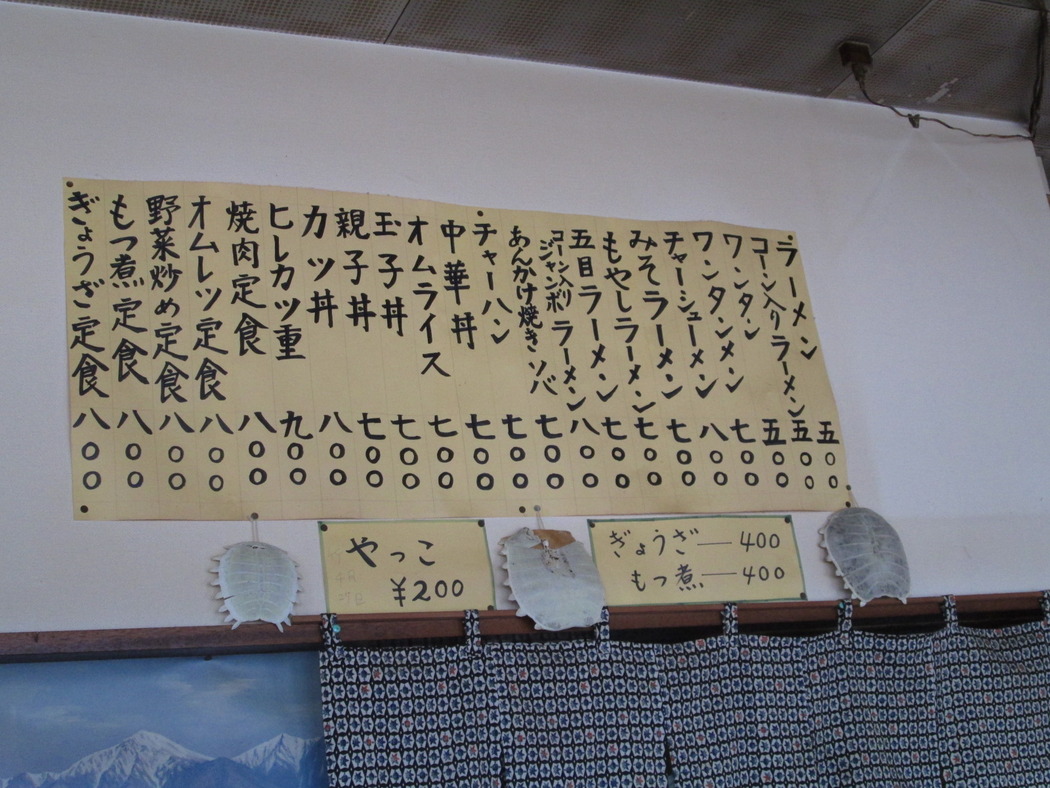 ラーメン 五〇〇
コーン入りラーメン 五〇〇
ワンタン 五〇〇
ワンタンメン 七〇〇
チャーシューメン 八〇〇
みそラーメン 七〇〇
もやしラーメン 七〇〇
五目ラーメン 七〇〇
コーン入りジャンボラーメン 八〇〇
あんかけ焼きソバ 七〇〇
チャーハン 七〇〇
中華丼 七〇〇
オムライス 七〇〇
玉子丼 七〇〇
親子丼 七〇〇
カツ丼 八〇〇
ヒレカツ重 九〇〇
焼肉定食 八〇〇
オムレツ定食 八〇〇
野菜炒め定食 八〇〇
もつ煮定食 八〇〇
ぎょうざ定食 八〇〇
やっこ
¥200
ぎょうざ―400
もつ煮―400